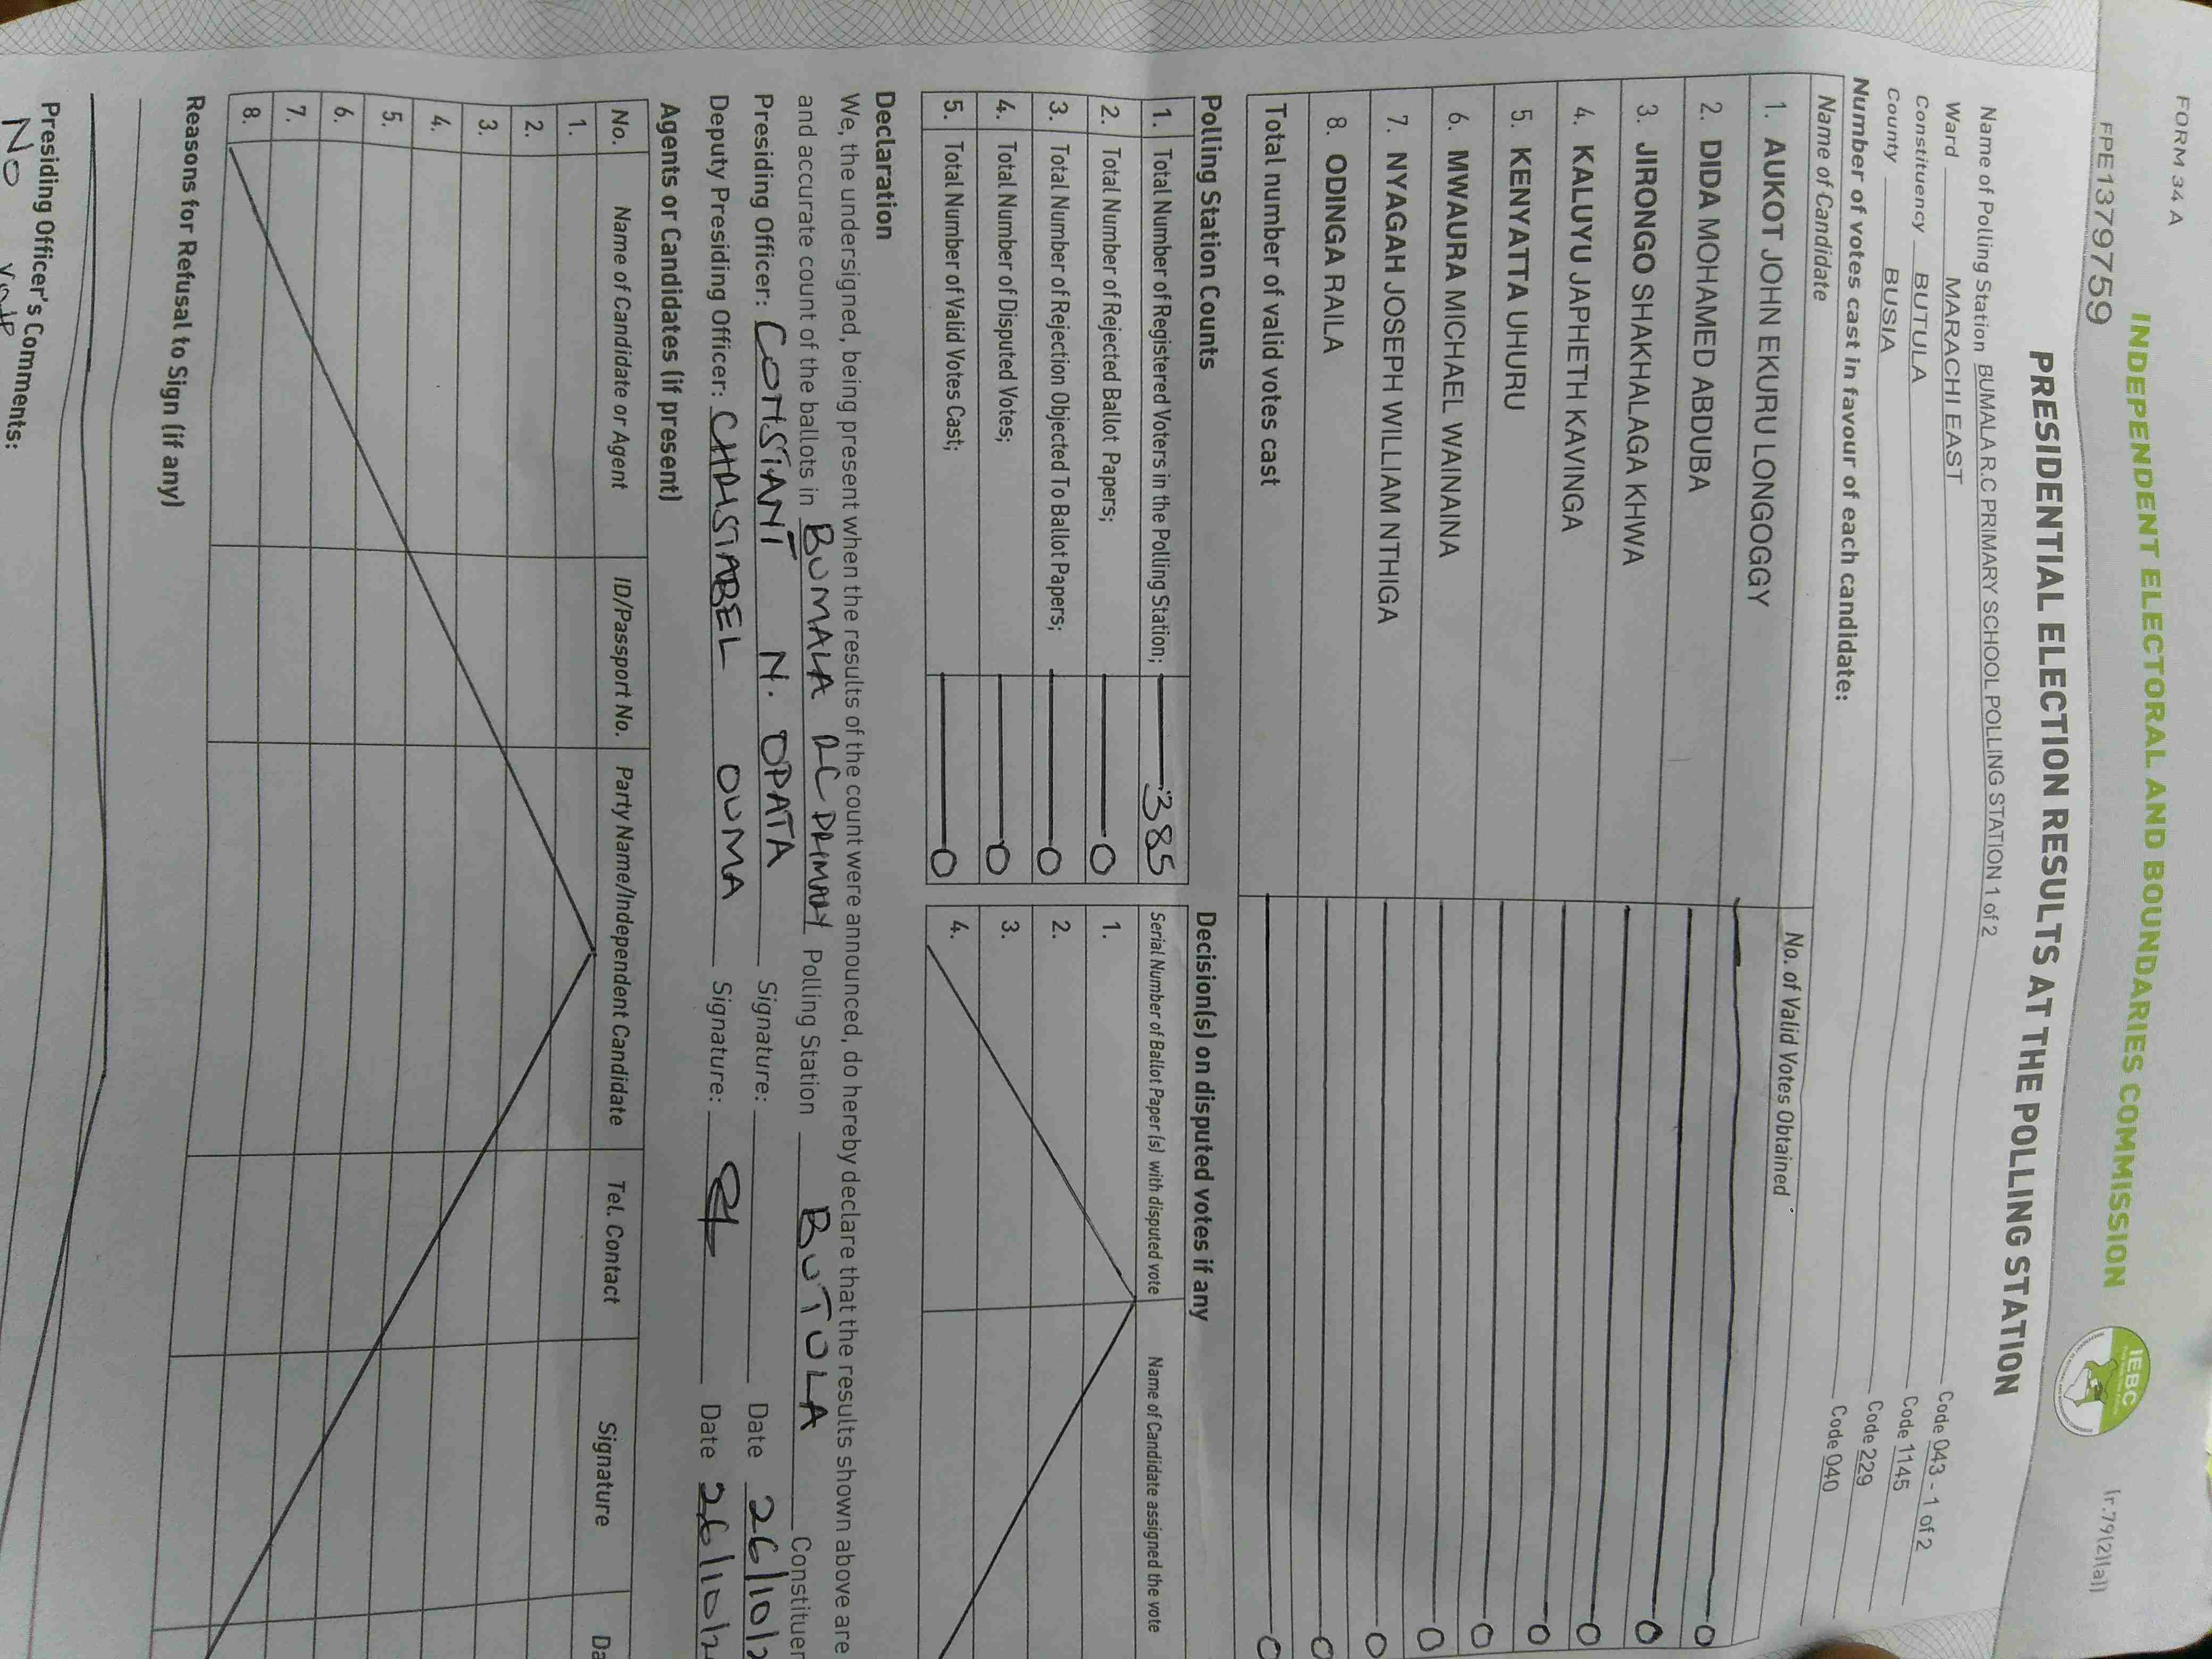 FORM 34 A
(r.79(2)(a))
INDEPENDENT ELECTORAL AND BOUNDARIES COMMISSION
IEBC
FPE1379759
PRESIDENTIAL ELECTION RESULTS AT THE POLLING STATION
Name of Polling Station BUMALA R.C PRIMARY SCHOOL POLLING STATION 1 of 2 Code 043 - 1 of 2
Ward MARACHI EAST Code 1145
Constituency BUTULA Code 229
County BUSIA Code 040
Number of votes cast in favour of each candidate:
Name of Candidate No. of Valid Votes Obtained
1. AUKOT JOHN EKURU LONGOGGY 0
2. DIDA MOHAMED ABDUBA 0
3. JIRONGO SHAKHALAGA KHWA 0
4. KALUYU JAPHETH KAVINGA 0
5. KENYATTA UHURU 0
6. MWAURA MICHAEL WAINAINA 0
7. NYAGAH JOSEPH WILLIAM NTHIGA 0
8. ODINGA RAILA 0
Total number of valid votes cast 0
Polling Station Counts
1. Total Number of Registered Voters in the Polling Station; 385
2. Total Number of Rejected Ballot Papers; 0
3. Total Number of Rejection Objected To Ballot Papers; 0
4. Total Number of Disputed Votes; 0
5. Total Number of Valid Votes Cast; 0
Decision(s) on disputed votes if any
Serial Number of Ballot Paper (s) with disputed vote Name of Candidate assigned the vote
1.
2.
3.
4.
Declaration
We, the undersigned, being present when the results of the count were announced, do hereby declare that the results shown above are
and accurate count of the ballots in BUMALA RC PRIMARY Polling Station BUTULA Constituen
Presiding Officer: N. OPATA Signature: Date 26/10/2
Deputy Presiding Officer: OUMA Signature: Date 26/10/2
Agents or Candidates (if present)
No. Name of Candidate or Agent ID/Passport No. Party Name/Independent Candidate Tel. Contact Signature Da
1.
2.
3.
4.
5.
6.
7.
8.
Reasons for Refusal to Sign (if any)
Presiding Officer's Comments:
No